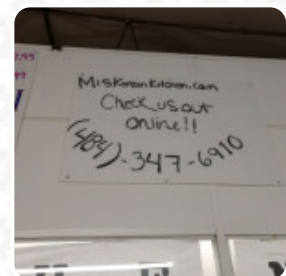 MisKoreanKitchen.com
Check us out
Online!!
(484)-347-6910